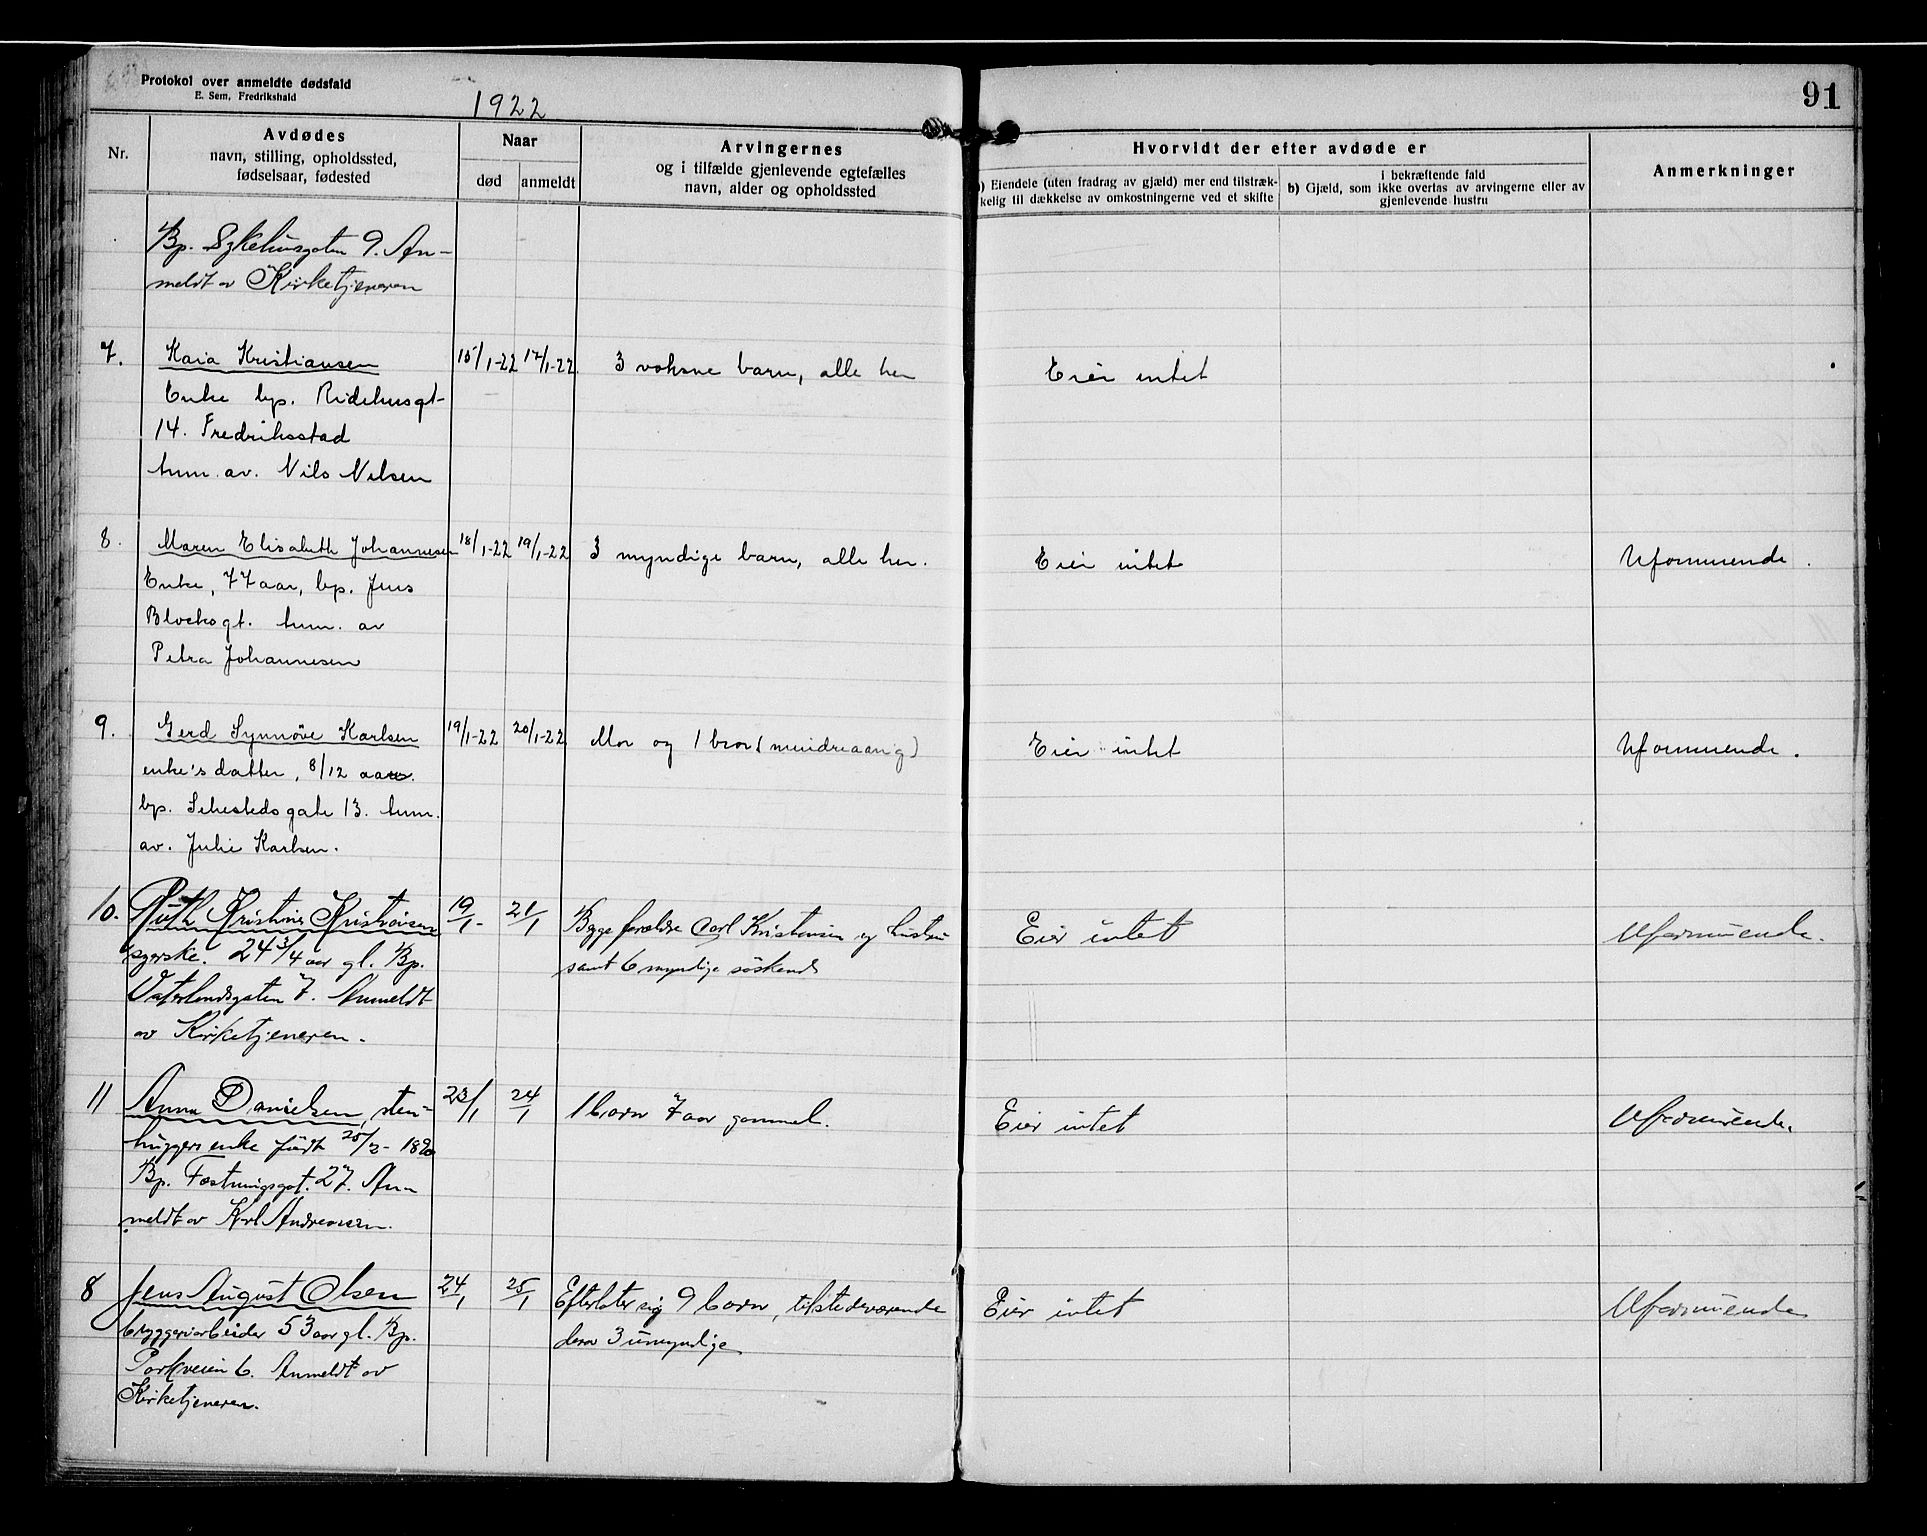 Protokol over anmeldte dødsfald
E. Sem, Fredrikshald
1922
91
Nr.
Avdødes
navn, stilling, opholdssted,
fødselsaar, fødested
Naar
død
anmeldt
Arvingernes
og i tilfælde gjenlevende egtefælles
navn, alder og opholdssted
Hvorvidt der efter avdøde er
) Eiendele (uten fradrag av gjæld) mer end tilstræk-
kelig til dækkelse av omkostningerne ved et skifte
i bekræftende fald
b) Gjæld, som ikke overtas av arvingerne eller av
gjenlevende hustru
Anmerkninger
Bp. Sykehusgaten 9. An-
meldt av Kirketjeneren
7. Kaia Kristiansen 15/1-22 17/1-22 3 voksne barn, alle her Eier intet
Enke bp. Ridehusgt
14. Fredriksstad
hum. av. Nils Nilsen
8. Maren Elisabeth Johannesen 18/1-22 19/1-22 3 myndige barn, alle her. Eier intet Uformuende.
Enke, 77 aar, bp. Jens
Blochsgt. hum. av
Petra Johannesen
9. Gerd Synnøve Karlsen 19/1-22 20/1-22 Mor og 1 bror (mindreaarig) Eier intet Uformuende.
enke's datter, 8/12 aar.
bp. Sehestedsgate 13. hum.
av. Julie Karlsen.
10. Ruth Kristine Kristiansen 19/1- 21/1 Begge forældre Carl Kristiansen og hustru Eier intet Uformuende.
syerske. 24 3/4 aar gl. Bp. samt 6 myndige søskende
Vaterlandsgaten 7. Anmeldt
av Kirketjeneren.
11 Anna Danielsen, sten- 23/1 24/1 1 barn 7 aar gammel. Eier intet Uformuende.
huggers enke født 25/2- 18
Bp. Fæstningsgt. 27. An-
meldt av Karl Andreassen.
8 Jens August Olsen 24/1 25/1 Efterlater sig 9 barn, tilstedeværende Eier intet Uformuende
bryggeriarbeider 53 aar gl. Bp. derav 3 umyndige
Parkveien 6. Anmeldt av
Kirketjeneren.